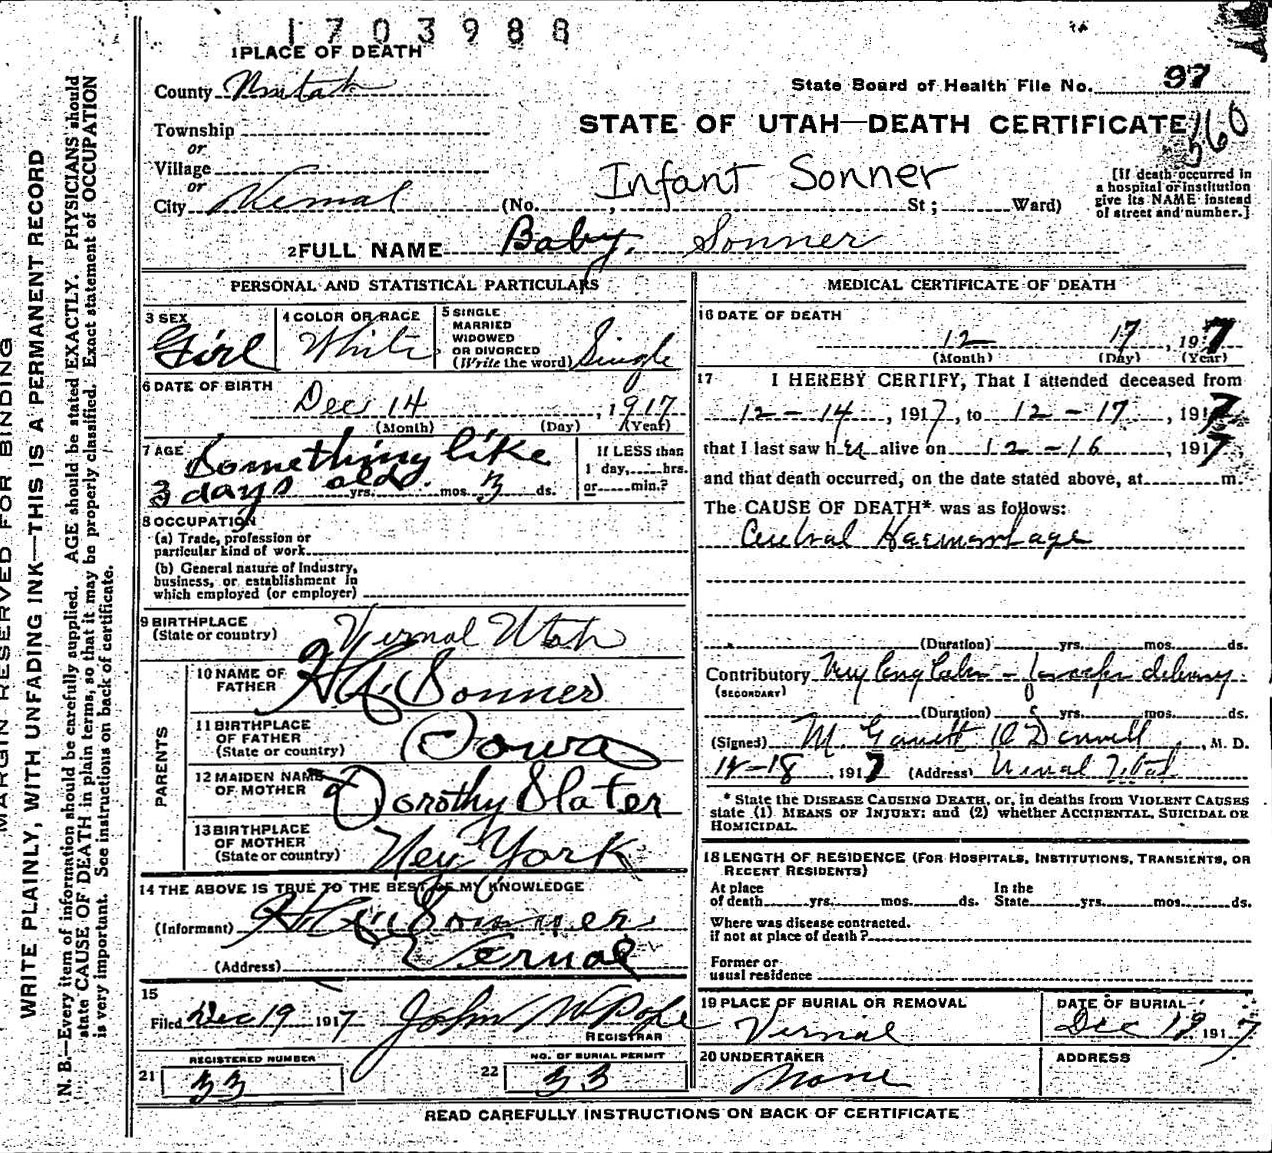 1703988
1 PLACE OF DEATH
County Uintah
State Board of Health File No. 97
Township
or
STATE OF UTAH—DEATH CERTIFICATE 560
Village
or
Infant Sonner
[If death occurred in
a hospital or institution
give its NAME instead
of street and number.]
City Vernal (No. , St; Ward)
2 FULL NAME Baby Sonner
PERSONAL AND STATISTICAL PARTICULARS
3 SEX
Girl
4 COLOR OR RACE
White
5 SINGLE
MARRIED
WIDOWED
OR DIVORCED
(Write the word) Single
6 DATE OF BIRTH
Dec 14, 1917
(Month) (Day) (Year)
7 AGE Something like
3 days old. yrs. mos. 3 ds.
If LESS than
1 day, hrs.
or min.?
8 OCCUPATION
(a) Trade, profession or
particular kind of work
(b) General nature of Industry,
business, or establishment in
which employed (or employer)
9 BIRTHPLACE
(State or country) Vernal Utah
PARENTS
10 NAME OF
FATHER Sonner
11 BIRTHPLACE
OF FATHER
(State or country) Iowa
12 MAIDEN NAME
OF MOTHER Dorothy Slater
13 BIRTHPLACE
OF MOTHER
(State or country) Ney York
14 THE ABOVE IS TRUE TO THE BEST OF MY KNOWLEDGE
(Informant) Sonner
(Address) Vernal
15
Filed Dec 19 1917 John W Pope
REGISTRAR
REGISTERED NUMBER
21 33
NO. OF BURIAL PERMIT
22 33
MEDICAL CERTIFICATE OF DEATH
16 DATE OF DEATH
12 17, 1917
(Month) (Day) (Year)
17 I HEREBY CERTIFY, That I attended deceased from
12-14, 1917, to 12-17, 1917
that I last saw her alive on 12-16, 1917,
and that death occurred, on the date stated above, at m.
The CAUSE OF DEATH* was as follows:
Cerebral Haemorrhage
(Duration) yrs. mos. ds.
Contributory Very long labor - forceps delivery
(SECONDARY)
(Duration) yrs. mos. ds.
(Signed) M. Garrett O'Donnell, M. D.
12-18, 1917 (Address) Vernal Utah
* State the DISEASE CAUSING DEATH, or, in deaths from VIOLENT CAUSES
state (1) MEANS OF INJURY; and (2) whether ACCIDENTAL, SUICIDAL OR
HOMICIDAL.
18 LENGTH OF RESIDENCE (FOR HOSPITALS, INSTITUTIONS, TRANSIENTS, OR
RECENT RESIDENTS)
At place
of death yrs. mos. ds.
In the
State yrs. mos. ds.
Where was disease contracted.
if not at place of death?
Former or
usual residence
19 PLACE OF BURIAL OR REMOVAL
Vernal
DATE OF BURIAL
Dec 19 1917
20 UNDERTAKER
None
ADDRESS
READ CAREFULLY INSTRUCTIONS ON BACK OF CERTIFICATE
MARGIN RESERVED FOR BINDING
WRITE PLAINLY, WITH UNFADING INK—THIS IS A PERMANENT RECORD
N. B.—Every item of information should be carefully supplied. AGE should be stated EXACTLY. PHYSICIANS should
state CAUSE OF DEATH in plain terms, so that it may be properly classified. Exact statement of OCCUPATION
is very important. See instructions on back of certificate.